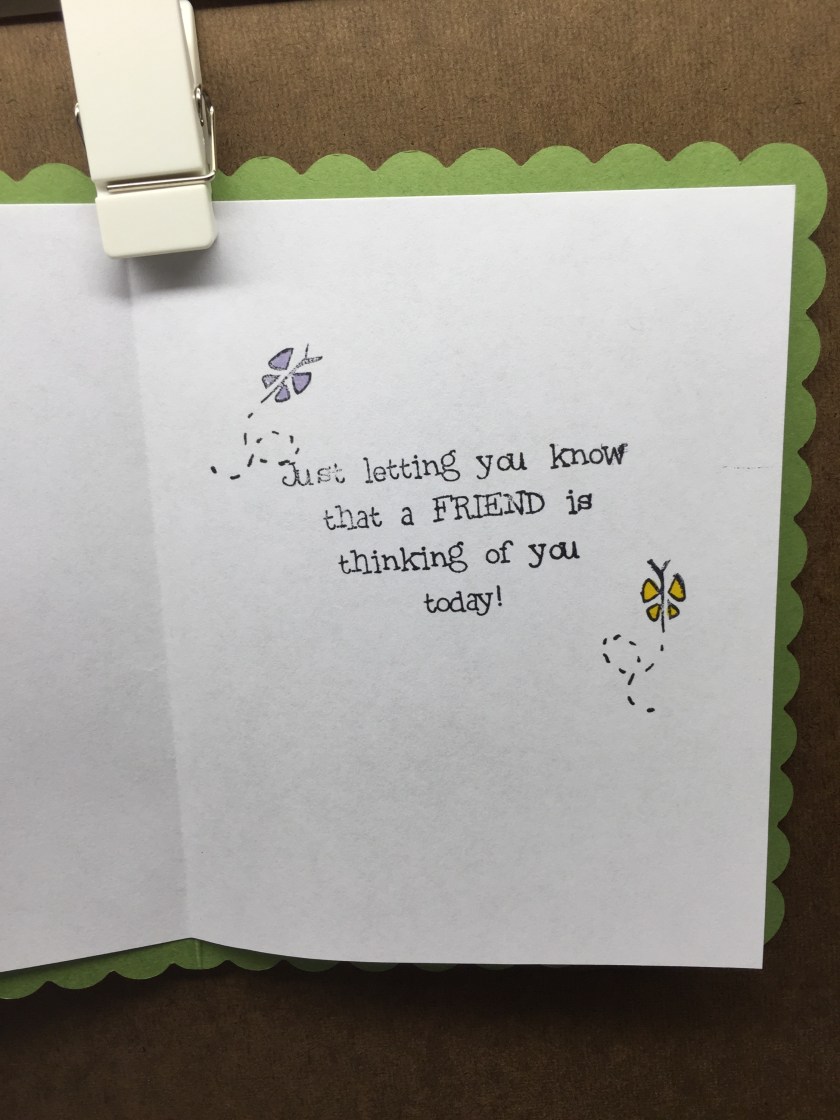 Just letting you know
that a FRIEND is
thinking of you
today!